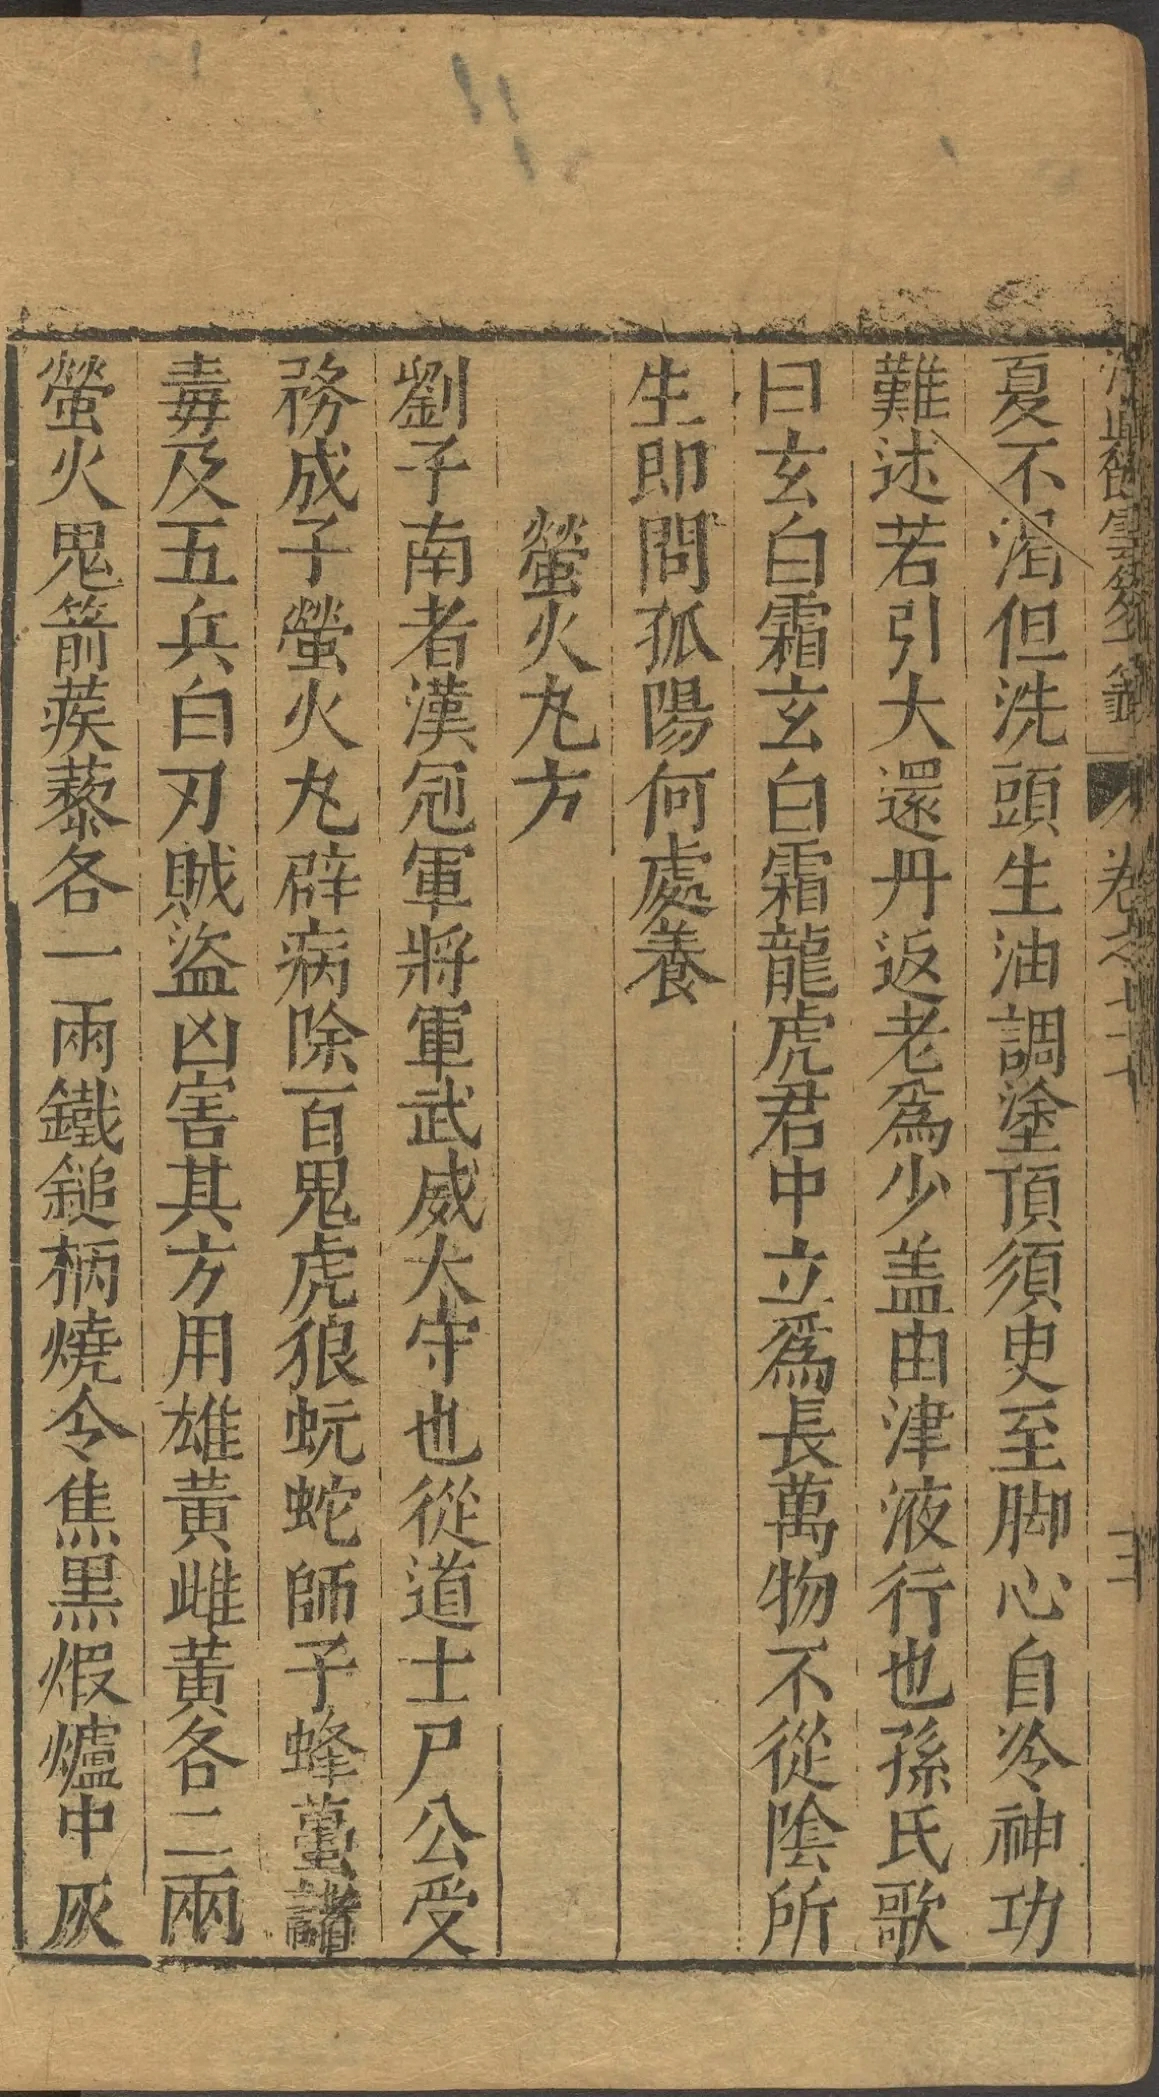 雲笈 卷之七十七 三
夏不渴但洗頭生油調塗頂須臾至脚心自冷神功
難述若引大還丹返老爲少盖由津液行也孫氏歌
曰玄白霜玄白霜龍虎君中立爲長萬物不從隂所
生即問孤陽何處養
螢火丸方
劉子南者漢冠軍將軍武威太守也從道士尹公受
務成子螢火丸辟病除百鬼虎狼蚖蛇師子蜂蠆諸
毒及五兵白刃賊盜凶害其方用雄黃雌黃各二兩
螢火鬼箭蒺藜各一兩鐵鎚柄燒令焦黒煆爐中灰